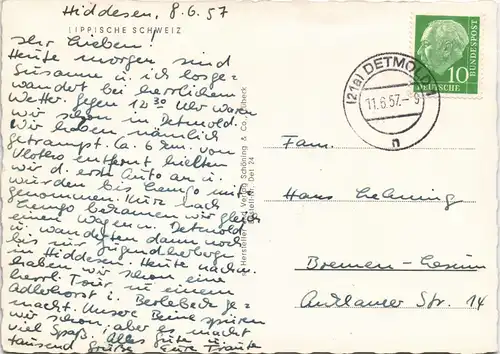 Hiddesen, 8.6.57
LIPPISCHE SCHWEIZ
Ihr Lieben!
Heute morgen sind
Susanne u. ich losge-
wandert bei herrlichem
Wetter. Gegen 12.30 Uhr waren
wir schon in Detmold.
Wir haben nämlich
getrampt. Ca. 6 km von
Vlotho entfernt hielten
wir d. erste Auto an u.
wurden bis Lemgo mit-
genommen. Kurz nach
Lemgo bekamen wir gleich
einen Wagen n. Detmold
u. wanderten dann noch
bis zur Jugendherberge
in Hiddesen. Heute nachm.
haben wir schon eine
herrl. Tour zu einem
Adlerhorst i. Berlebeck ge-
macht. Unsere Beine spüren
wir schon, aber es macht
viel Spaß. Alles Gute u.
tausend Grüße Eure Traute
Hersteller und Verlag Schöning & Co., Lübeck
Det. 24
10
DEUTSCHE
BUNDESPOST
(21a) DETMOLD
11.6.57.-9
n
Fam.
Hans
Bremen-Lesum
Str. 14